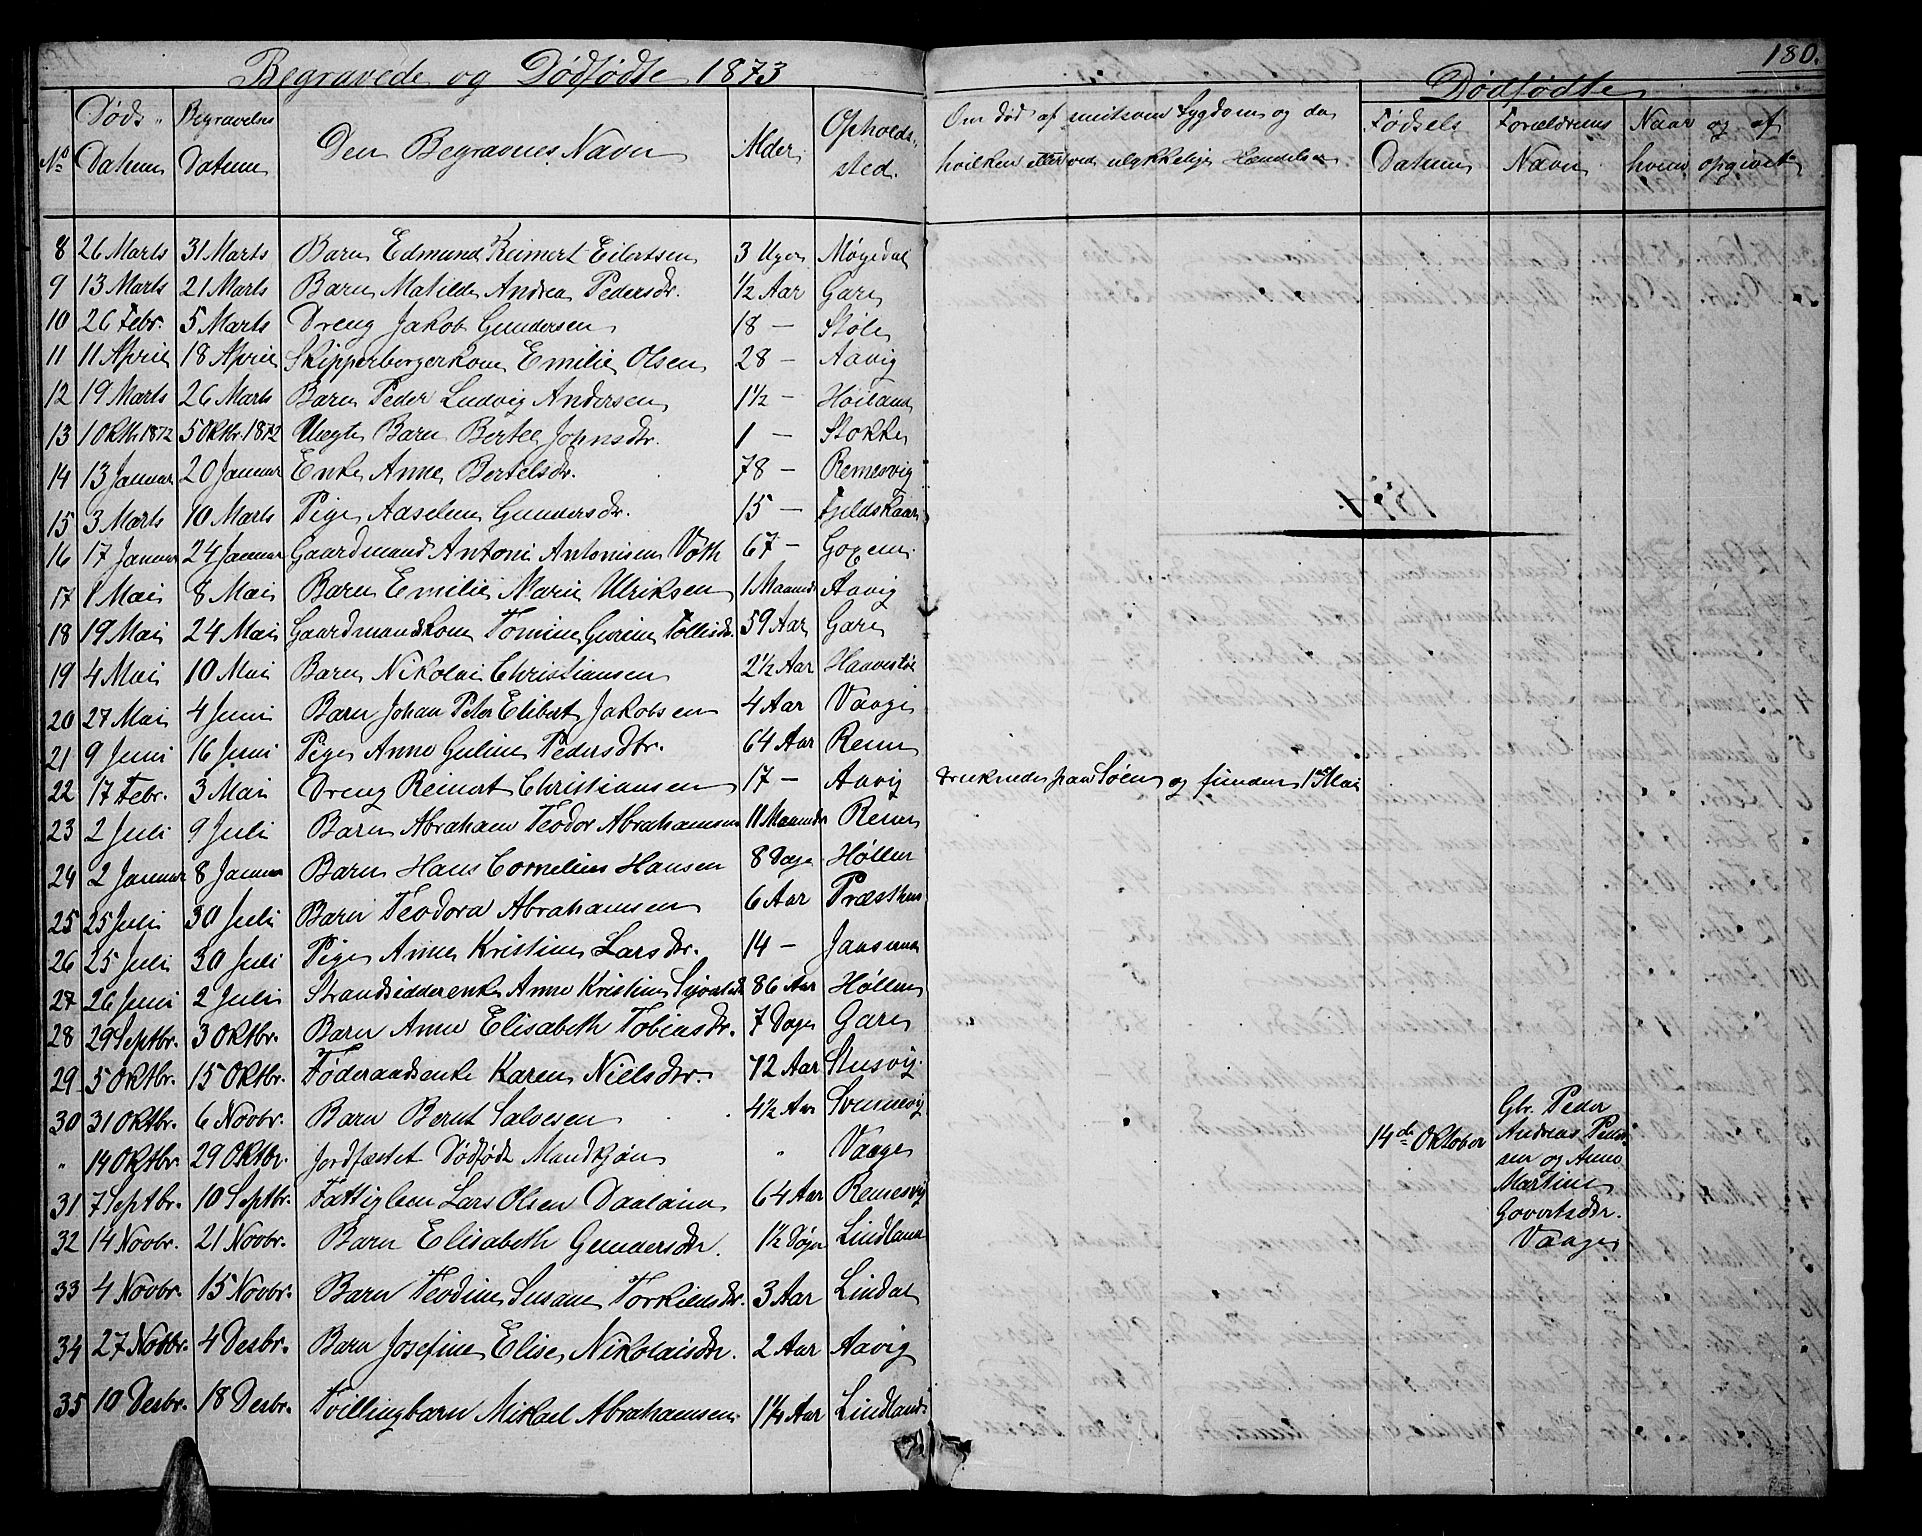 Begravede og Dødfødte 1873
180.
Dødfødte
No Døds Datum Begravelses Datum Den Begravnes Navn Alder Opholdssted.
Om død af smitsom Sygdom og da hvilken eller ved ulykkelig Hændelse
Fødsels Datum Forældrenes Navn Naar og af hvem opgivet
8 26 Marts 31 Marts Barn Edmund Reinert Eilertsen 3 Uger Møgedal
9 13 Marts 21 Marts Barn Matilde Andrea Pedersdr. 1/2 Aar Gare
10 26 Febr. 5 Marts Dreng Jakob Gundersen 18 — Støle
11 11 April 18 April Skipperborgerkone Emilie Olsen 28 — Aavig
12 19 Marts 26 Marts Barn Peder Ludvig Andersen 1½ — Høiland
13 1 Oktbr 1872 5 Oktbr. 1872 Uægte Barn Bertel Johnsdr. 1 — Stokke
14 13 Januar 20 Januar Enke Anne Bertelsdr. 78 — Remesvig
15 3 Marts 10 Marts Pige Aaselene Gundersdr. 15 — Fjeldskaar
16 17 Januar 24 Januar Gaardmand Antoni Antonisen Voth 67 — Goxem
17 1 Mai 8 Mai Barn Emilie Marie Ulriksen 1 Maaned Aavig
18 19 Mai 24 Mai Gaardmandskone Tomine Gurine Tollisdr. 59 Aar Gare
19 4 Mai 10 Mai Barn Nikolai Christiansen 2½ Aar Haavestøl
20 27 Mai 4 Juni Barn Johan Peter Elibert Jakobsen 4 Aar Vaage
21 9 Juni 16 Juni Pige Anne Guline Pedersdtr. 64 Aar Renne
22 17 Febr. 3 Mai Dreng Reinert Christiansen 17 — Aavig druknede paa Søen og funden 1ste Mai
23 2 Juli 9 Juli Barn Abraham Teodor Abrahamsen 11 Maaneder Renne
24 2 Januar 8 Januar Barn Hans Cornelius Hansen 8 Dage Høllen
25 25 Juli 30 Juli Barn Teodora Abrahamsen 6 Aar Præsthus
26 25 Juli 30 Juli Pige Anne Kristine Larsdr. 14 — Jaasund
27 26 Juni 2 Juli Strandsidderenke Anne Kristine Syvertsdr 86 Aar Høllen
28 29 Septbr. 3 Oktbr. Barn Anne Elisabeth Tobiasdr. 7 Dage Gare
29 5 Oktbr. 15 Oktbr. Føderaadsenke Karen Nielsdr. 72 Aar Stusvig
30 31 Oktbr. 6 Novbr. Barn Bernt Salvesen 4½ Aar Svennevig
" 14 Oktbr. 29 Oktbr. Jordfæstet Dødfødt Mandkjøn " Vaage
14de Oktober
Gbr. Peder
Andreas Peder
sen og Anne
Martine
Govertsdtr.
Vaage
31 7 Septbr. 10 Septbr. Fattiglem Lars Olsen Daaland 64 Aar Remesvig
32 14 Novbr. 21 Novbr. Barn Elisabeth Gundersdr. 1½ Døgn Lindland
33 4 Novbr. 15 Novbr. Barn Teodine Susane Torkildsdr. 3 Aar Lindal
34 27 Novbr. 4 Desbr. Barn Josefine Elise Nikolaisdr. 2 Aar Aavig
35 10 Desbr. 18 Desbr. Tvillingbarn Mikael Abrahamsen 1¼ Aar Lindland